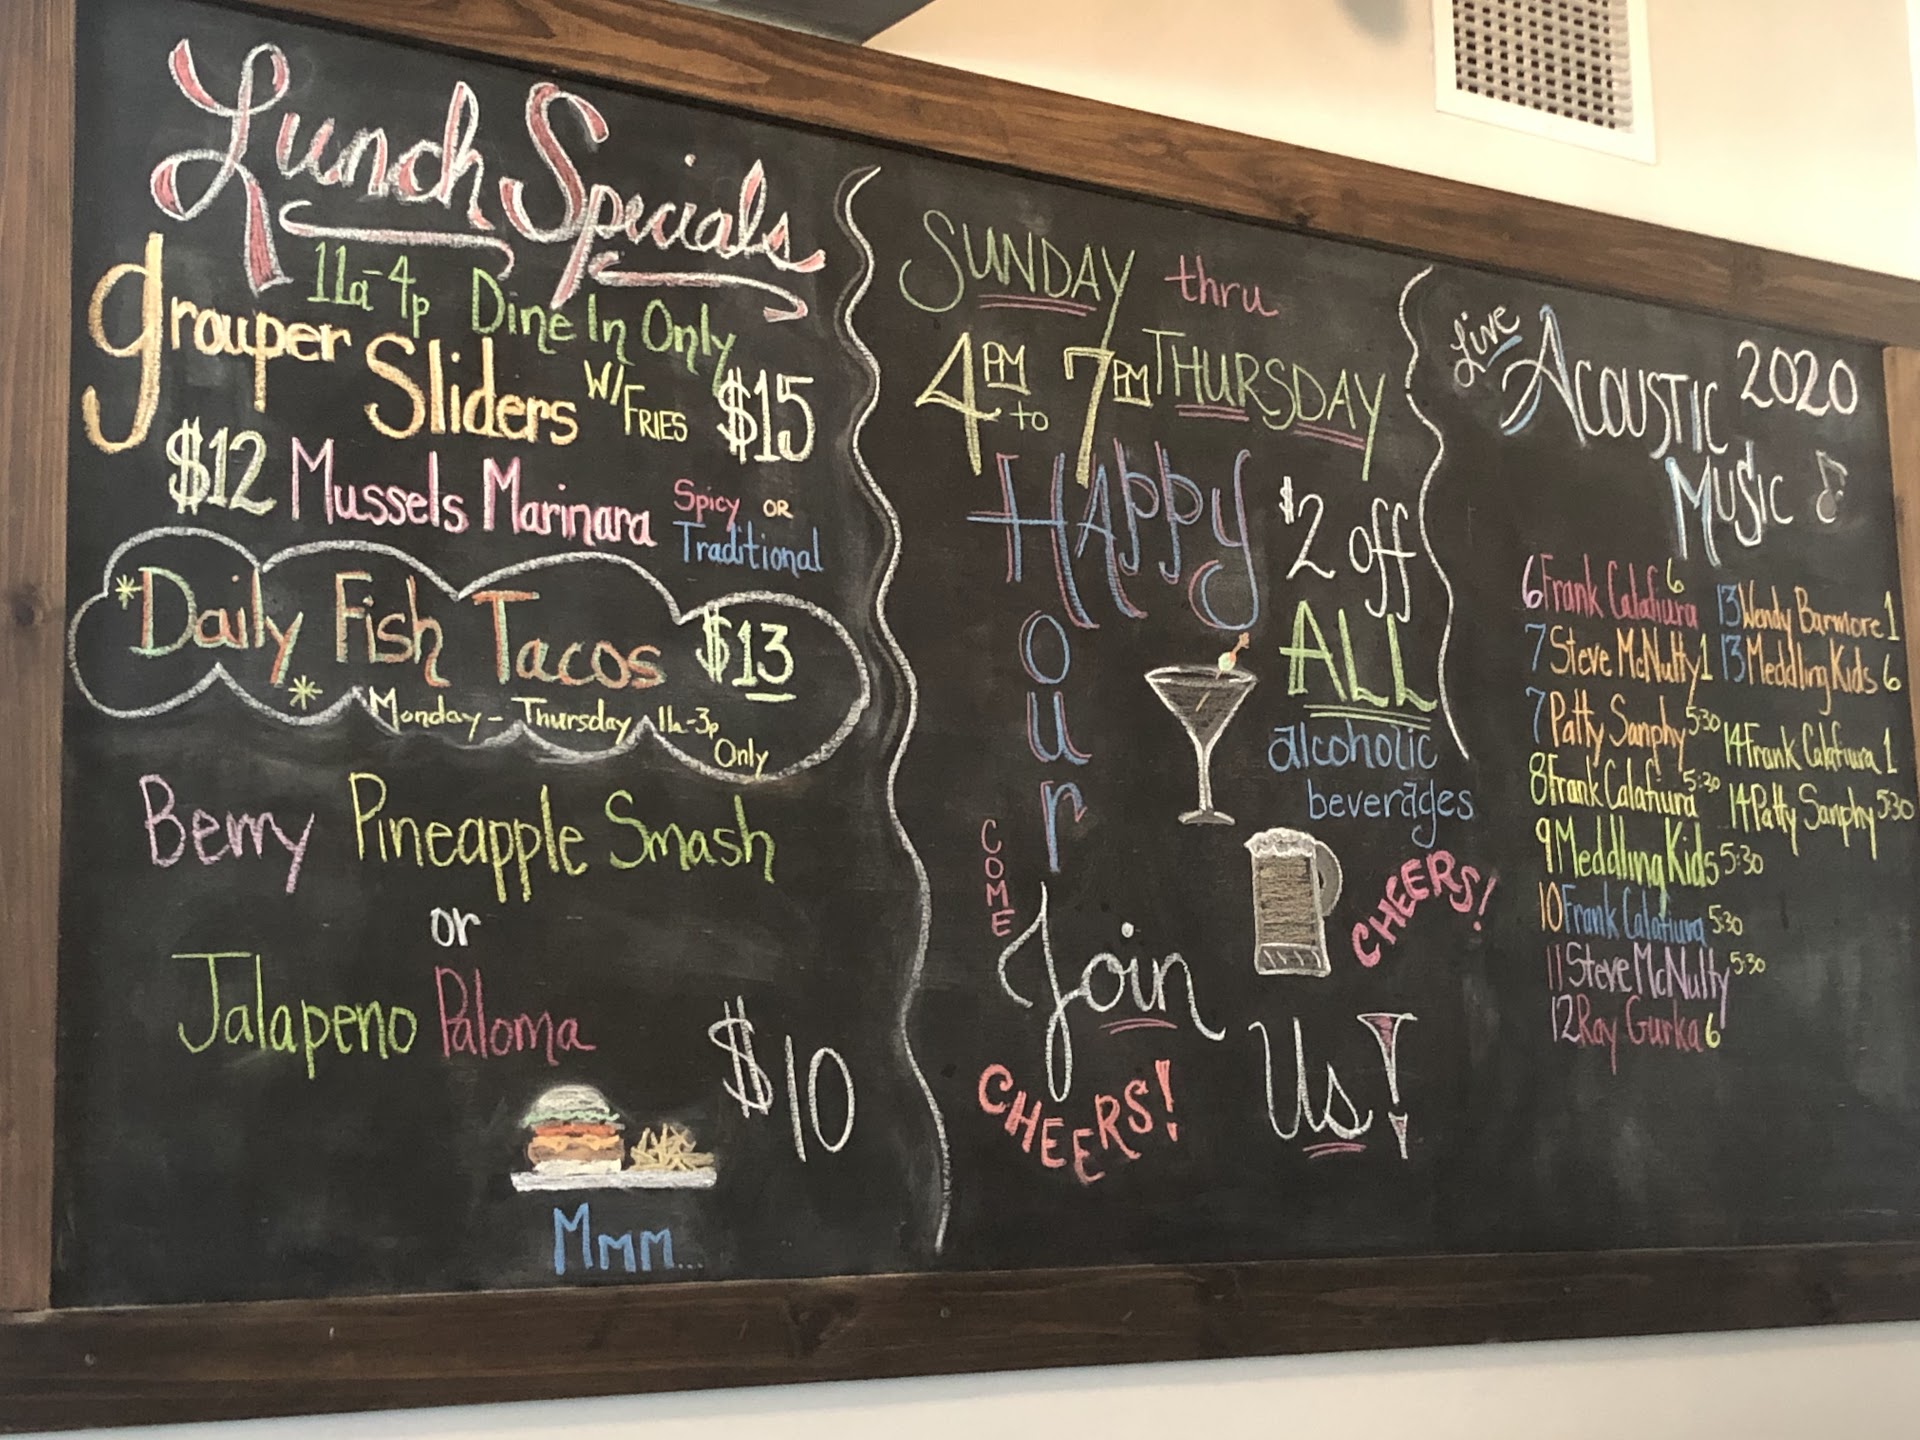 Lunch Specials
11a-4p Dine In Only
grouper Sliders W/FRIES $15
$12 Mussels Marinara Spicy OR Traditional
*Daily Fish Tacos $13
* Monday - Thursday 11a-3p Only
Berry Pineapple Smash
or
Jalapeno Paloma
$10
Mmm...
SUNDAY thru
4PM to 7PM THURSDAY
HAPPY Hour
$2 off
ALL
alcoholic
beverages
COME
Join
Us!
CHEERS!
CHEERS!
Live ACOUSTIC 2020
MUSIC
6 Frank Calafiura 6
7 Steve McNulty 1
7 Patty Sanphy 5:30
8 Frank Calafiura 5:30
9 Meddling Kids 5:30
10 Frank Calafiura 5:30
11 Steve McNulty 5:30
12 Ray Gurka 6
13 Wendy Barmore 1
13 Meddling Kids 6
14 Frank Calafiura 1
14 Patty Sanphy 5:30